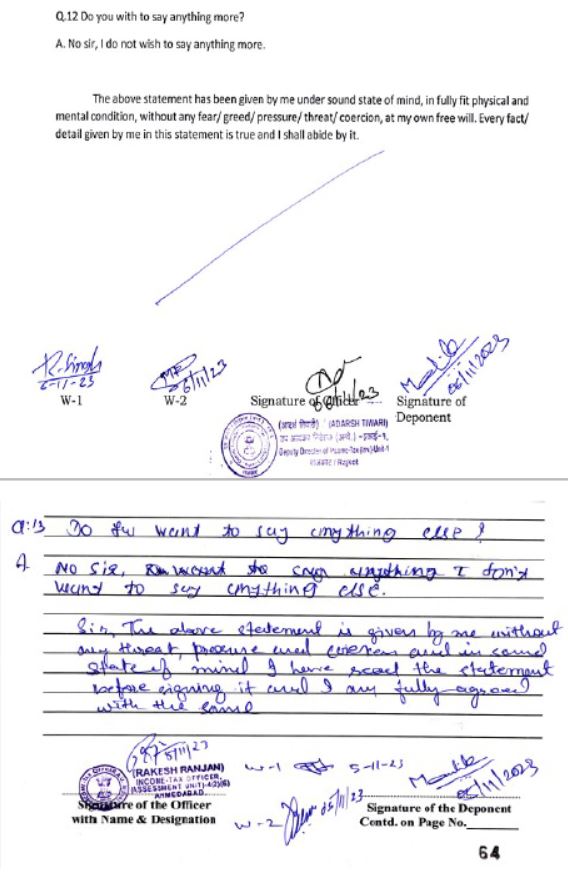 Q.12 Do you with to say anything more?
A. No sir, I do not wish to say anything more.
The above statement has been given by me under sound state of mind, in fully fit physical and
mental condition, without any fear/ greed/ pressure/ threat/ coercion, at my own free will. Every fact/
detail given by me in this statement is true and I shall abide by it.
R. Singh
6-11-23
W-1
6/11/23
W-2
Signature of Officer
(ADARSH TIWARI)
Deputy Director of Income-Tax (Inv) Unit-1
/ Rajkot
06/11/2023
Signature of
Deponent
Q:13 Do you want to say anything else?
A No sir, I don't
want to say anything else.
Sir, The above statement is given by me without
any threat, pressure and coercion and in sound
state of mind I have read the statement
before signing it and I am fully agreed
with the same
5/11/23
(RAKESH RANJAN)
INCOME-TAX OFFICER,
ASSESSMENT UNIT)-4(2)(6)
AHMEDABAD
Signature of the Officer
with Name & Designation
W-1 5-11-23
W-2 05/11/23
05/11/2023
Signature of the Deponent
Contd. on Page No.
64